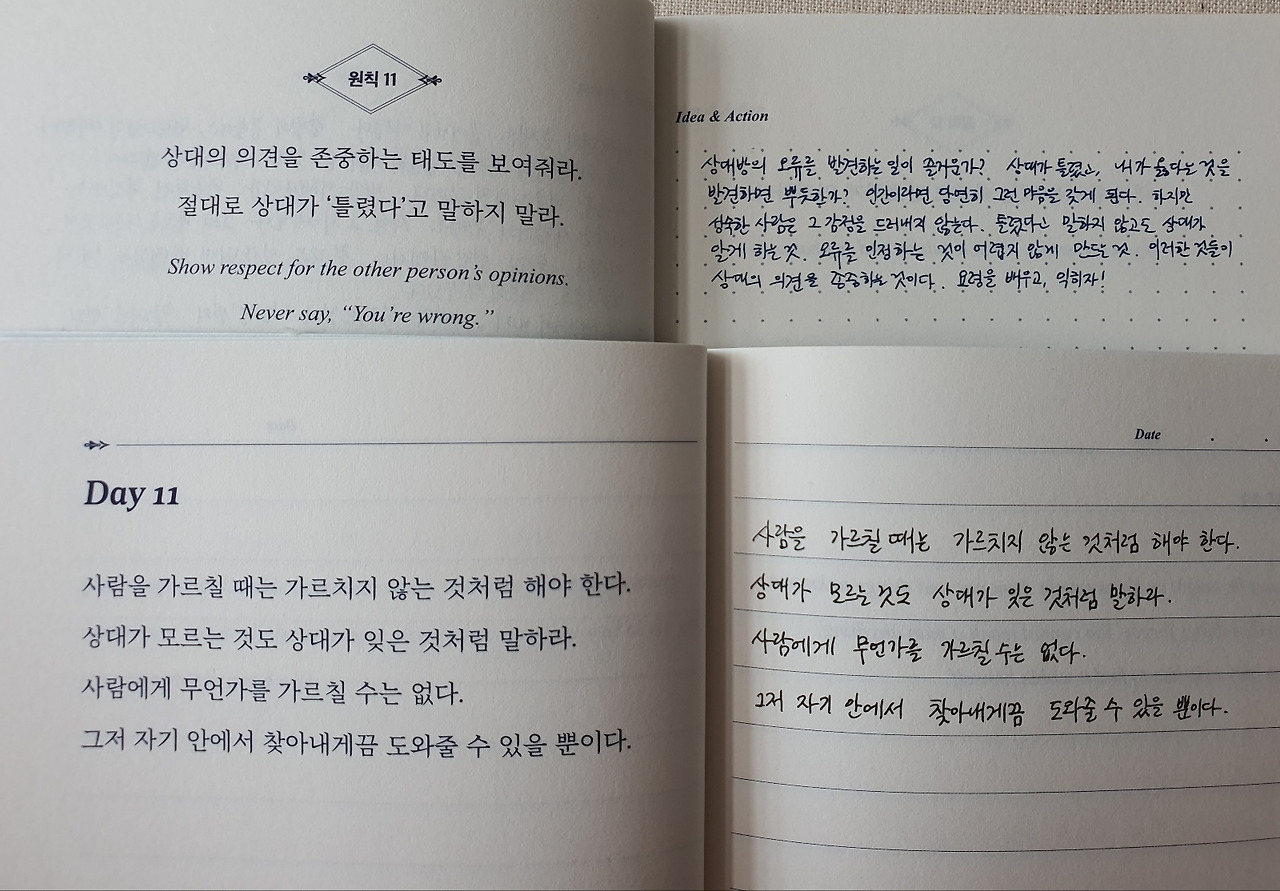 원칙 11
상대의 의견을 존중하는 태도를 보여줘라.
절대로 상대가 ‘틀렸다’고 말하지 말라.
Show respect for the other person's opinions.
Never say, “You're wrong.”
Idea & Action
상대방의 오류를 발견하는 일이 즐거운가? 상대가 틀렸고, 내가 옳다는 것을
발견하면 뿌듯한가? 인간이라면 당연히 그런 마음을 갖게 된다. 하지만
성숙한 사람은 그 감정을 드러내지 않는다. 틀렸다고 말하지 않고도 상대가
알게 하는 것. 오류를 인정하는 것이 어렵지 않게 만드는 것. 이러한 것들이
상대의 의견을 존중하는 것이다. 요령을 배우고, 익히자!
Day 11
사람을 가르칠 때는 가르치지 않는 것처럼 해야 한다.
상대가 모르는 것도 상대가 잊은 것처럼 말하라.
사람에게 무언가를 가르칠 수는 없다.
그저 자기 안에서 찾아내게끔 도와줄 수 있을 뿐이다.
Date . .
사람을 가르칠 때는 가르치지 않는 것처럼 해야 한다.
상대가 모르는 것도 상대가 잊은 것처럼 말하라.
사람에게 무언가를 가르칠 수는 없다.
그저 자기 안에서 찾아내게끔 도와줄 수 있을 뿐이다.